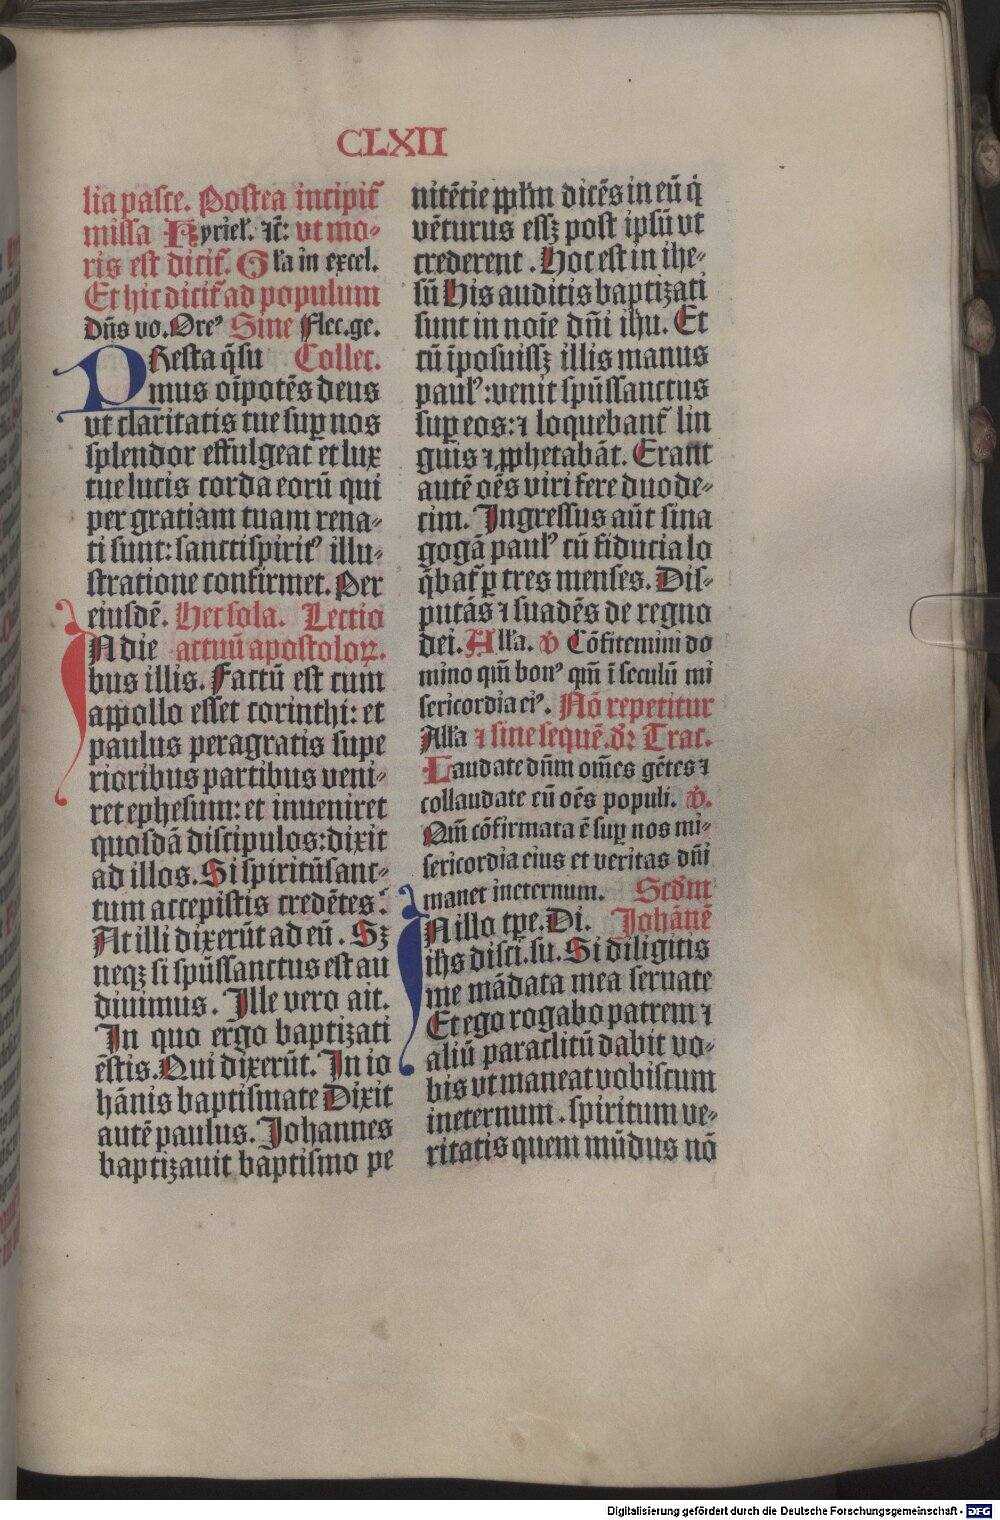 CLXII
lia pasce. Postea incipit᷑
missa Kyriel᷑. ⁊c̄: ut mo-
ris est dicit᷑. Gl̄a in excel.
Et hic dicit᷑ ad populum
Dn̄s vo. Ore⁹ Sine Flec. ge.
PResta q̄su Collec.
mus oīpotēs deus
ut claritatis tue suꝑ nos
splendor effulgeat et lux
tue lucis corda eorū qui
per gratiam tuam rena-
ti sunt: sancti spirit⁹ illu-
stratione confirmet. Per
eiusdē. Hec sola. Lectio
IN die actuū apostoloꝝ.
bus illis. Factū est cum
appollo esset corinthi: et
paulus peragratis supe
rioribus partibus veni-
ret ephesum: et inueniret
quosdā discipulos: dixit
ad illos. Si spiritū sanc-
tum accepistis credētes?
At illi dixerūt ad eū. Sꝫ
neqꝫ si spūssanctus est au
diuimus. Ille vero ait.
In quo ergo baptizati
ēstis. Qui dixerūt. In io
hānis baptismate Dixit
autē paulus. Johannes
baptizauit baptismo pe
nitētie pp̄lm̄ dicēs in eū q̇
vēturus essꝫ post ipsū ut
crederent. Hoc est in ihe-
sū His auditis baptizati
sunt in noīe dn̄i ihū. Et
cū īposuissꝫ illis manus
paul⁹: venit spūssanctus
suꝑ eos: ⁊ loquebant᷑ lin
guis ⁊ ꝓphetabāt. Erant
autē oēs viri fere duode-
cim. Ingressus aūt sina
gogā paul⁹ cū fiducia lo
q̄bat᷑ ꝑ tres menses. Dis-
putās ⁊ suadēs de regno
dei. All̄a. ℣ Cōfitemini do
mino qm̄ bon⁹ qm̄ ī seculū mi
sericordia ei⁹. Nō repetitur
All̄a ⁊ sine sequē. dr̄ Trac.
Laudate dn̄m om̄es gētes ⁊
collaudate eū oēs populi. ℣.
Qm̄ cōfirmata ē suꝑ nos mi-
sericordia eius et veritas dn̄i
manet in eternum. Scd̄m
IN illo tp̄e. Di. Johānē
ihs disci. su. Si diligitis
me mādata mea seruate
Et ego rogabo patrem ⁊
aliū paraclitū dabit vo-
bis ut maneat vobiscum
in eternum. spiritum ve-
ritatis quem mūdus nō
Digitalisierung gefördert durch die Deutsche Forschungsgemeinschaft - DFG